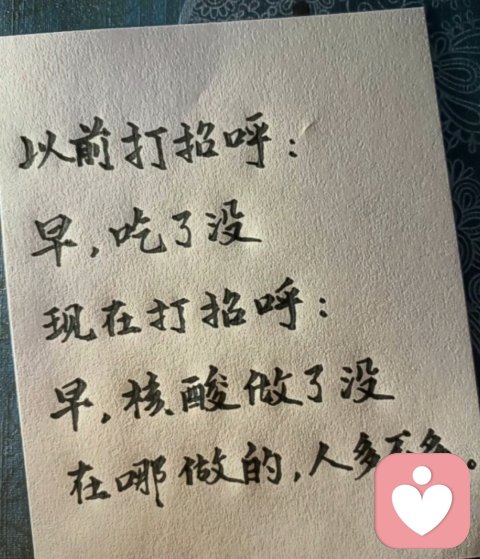 以前打招呼：
早，吃了没
现在打招呼：
早，核酸做了没
在哪做的，人多不多。